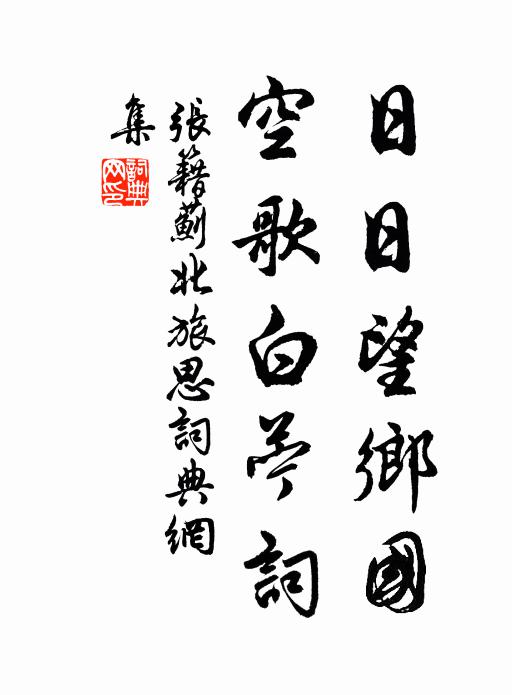 日日望鄉國
空歌白苧詞
張籍薊北旅思詞典網
集
詞典網印